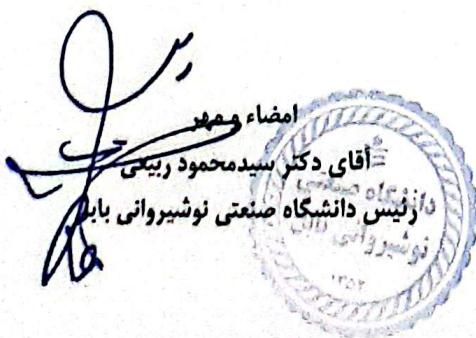 امضاء و مهر
آقای دکتر سیدمحمود ربیعی
رئیس دانشگاه صنعتی نوشیروانی بابل
دانشگاه صنعتی
نوشیروانی بابل
۱۳۵۲